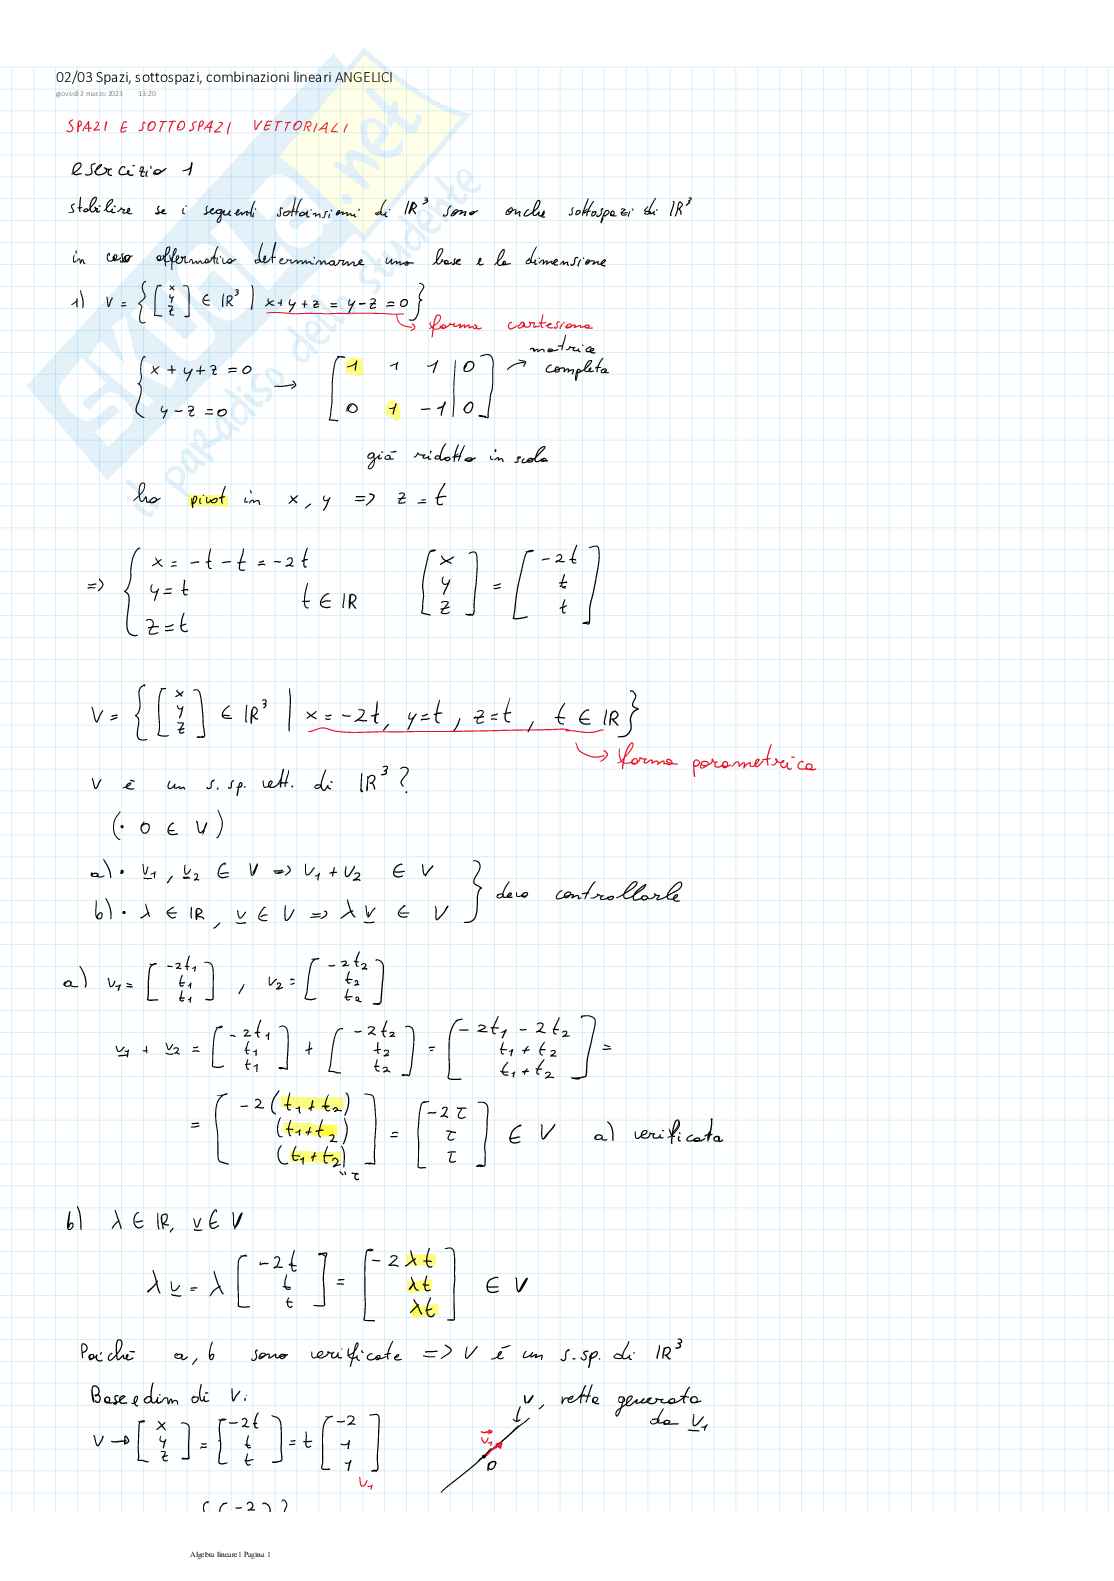 02/03 Spazi, sottospazi, combinazioni lineari ANGELICI
giovedì 2 marzo 2023 13:20
SPAZI E SOTTOSPAZI VETTORIALI
esercizio 1
stabilire se i seguenti sottoinsiemi di ℝ³ sono anche sottospazi di ℝ³
in caso affermativo determinarne una base e la dimensione
1) V = { [x y z] ∈ ℝ³ | x+y+z = y-z = 0 }
↳ forma cartesiana
{ x+y+z = 0
y-z = 0
→ [ 1 1 1 | 0
0 1 -1 | 0 ]
→ matrice completa
già ridotta in scala
ho pivot in x, y => z = t
=> { x = -t-t = -2t
y = t
z = t
t ∈ ℝ
[x y z] = [-2t t t]
V = { [x y z] ∈ ℝ³ | x = -2t, y=t, z=t, t ∈ ℝ }
↳ forma parametrica
V è un s.sp. vett. di ℝ³?
(· 0 ∈ V)
a) · v₁, v₂ ∈ V => v₁ + v₂ ∈ V
b) · λ ∈ ℝ, v ∈ V => λ v ∈ V
} devo controllarle
a) v₁ = [-2t₁ t₁ t₁] , v₂ = [-2t₂ t₂ t₂]
v₁ + v₂ = [-2t₁ t₁ t₁] + [-2t₂ t₂ t₂] = [-2t₁ - 2t₂ t₁ + t₂ t₁ + t₂] =
= [-2(t₁+t₂) (t₁+t₂) (t₁+t₂)] = [-2τ τ τ] ∈ V a) verificata
" τ
b) λ ∈ ℝ, v ∈ V
λ v = λ [-2t t t] = [-2λt λt λt] ∈ V
Poiché a, b sono verificate => V è un s.sp. di ℝ³
Base e dim di V:
V → [x y z] = [-2t t t] = t [-2 1 1]
v₁
V, retta generata
da v₁
v₁
0
{(-2)}
Algebra lineare1 Pagina 1
SKUOLA.net
il paradiso dello studente